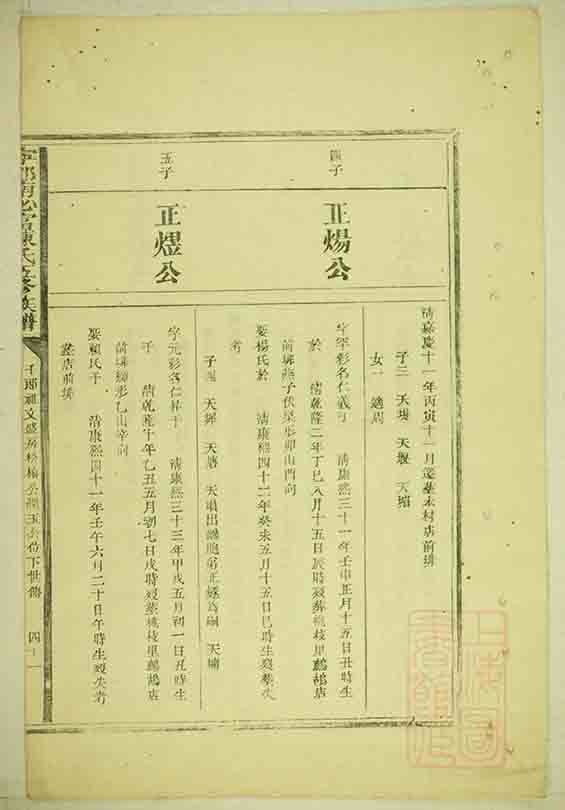 清嘉慶十一年丙寅十一月遷葬木村店前排
子三 天場 天堰 天
女一 適周
四子
正煬公
字平彩名仁義于 清康熙三十一年壬申正月十五日丑時生
於 清乾隆二年丁巳八月十五日辰時歿葬桃枝里鷓鴣店
前排 子伏 形卯山酉向
娶楊氏於 清康熙四十二年癸未五月十五日巳時生歿葬失
考
子 天 天 天 出 胞弟正 為嗣 天
五子
正煜公
字元彩名仁昇于 清康熙三十三年甲戌五月初一日丑時生
于 清乾隆十年乙丑五月初七日戌時歿葬桃枝里鷓鴣店
前排 形乙山辛向
娶賴氏于 清康熙四十一年壬午六月二十日午時生歿失考
葬店前排
寧都 陳氏五修族譜
子郎祖文盛房杉 公 玉 位下世傳
四
上海圖書館